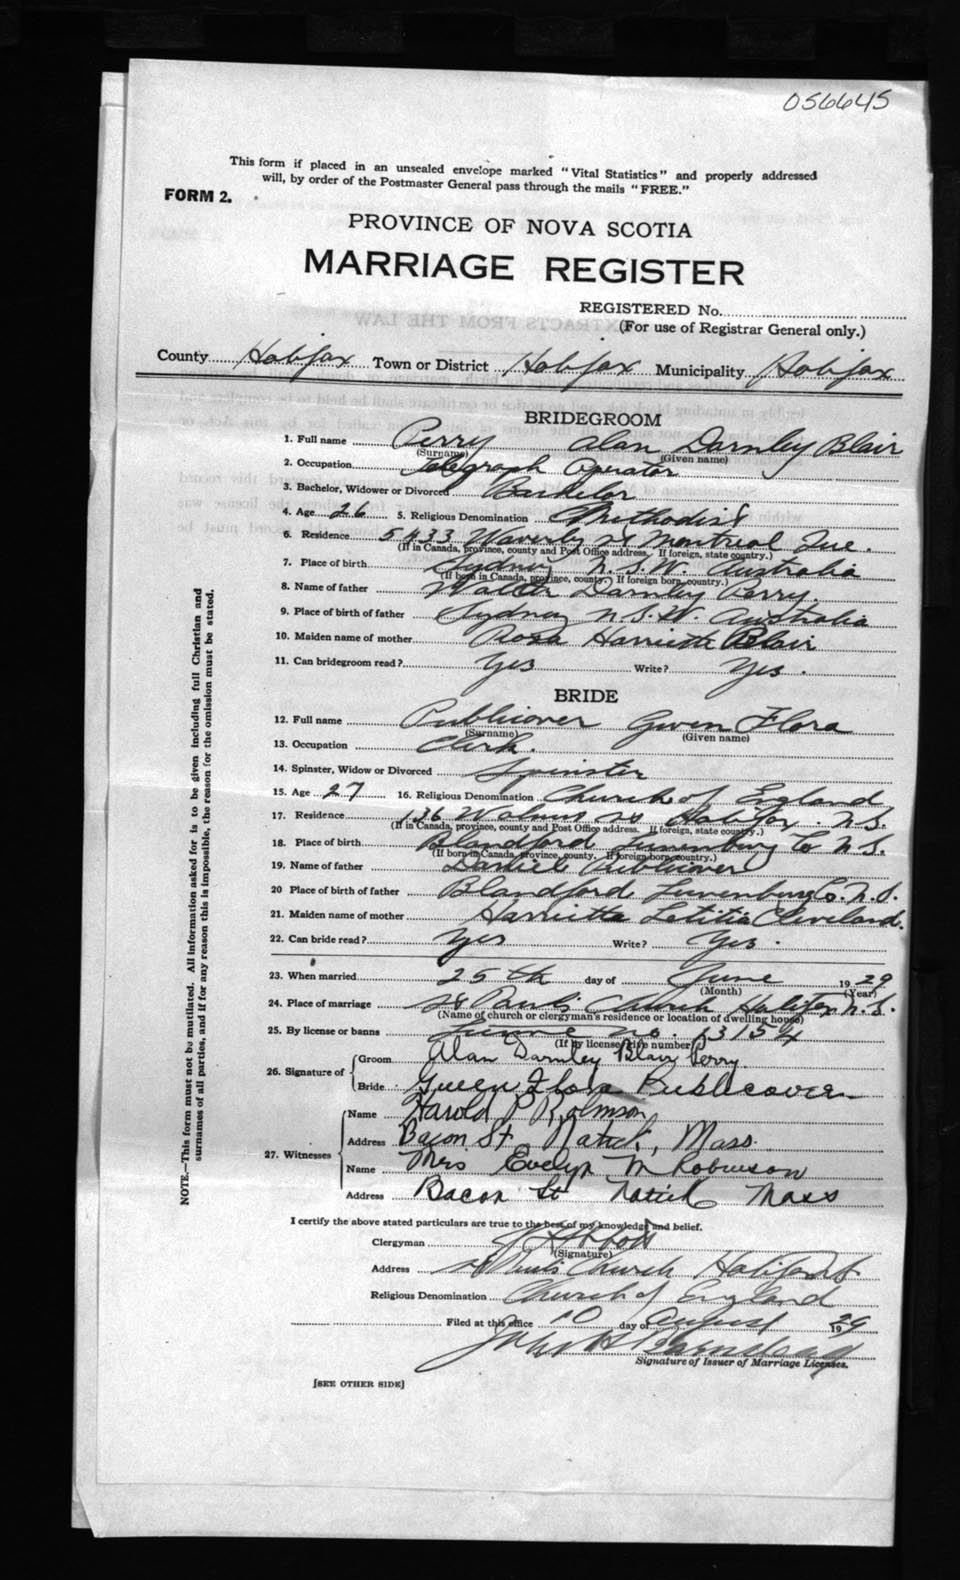 056645
This form if placed in an unsealed envelope marked "Vital Statistics" and properly addressed
will, by order of the Postmaster General pass through the mails "FREE."
FORM 2.
PROVINCE OF NOVA SCOTIA
MARRIAGE REGISTER
REGISTERED No.
(For use of Registrar General only.)
County Halifax Town or District Halifax Municipality Halifax
BRIDEGROOM
1. Full name Perry Alan Darnley Blair
(Surname) (Given name)
2. Occupation Telegraph Operator
3. Bachelor, Widower or Divorced Bachelor
4. Age 26 5. Religious Denomination Methodist
6. Residence 5433 Waverly St Montreal Que.
(If in Canada, province, county and Post Office address. If foreign, state country.)
7. Place of birth Sydney N.S.W. Australia
(If born in Canada, province, county. If foreign born, country.)
8. Name of father Walter Darnley Perry.
9. Place of birth of father Sydney N.S.W. Australia
10. Maiden name of mother Rosa Harriette Blair
11. Can bridegroom read? Yes Write? Yes.
BRIDE
12. Full name Publicover Gwen Flora
(Surname) (Given name)
13. Occupation Clerk.
14. Spinster, Widow or Divorced Spinster
15. Age 27 16. Religious Denomination Church of England
17. Residence 136 Walnut St Halifax N.S.
(If in Canada, province, county and Post Office address. If foreign, state country.)
18. Place of birth Blandford Lunenburg Co N.S.
(If born in Canada, province, county. If foreign born, country.)
19. Name of father Daniel Publicover
20 Place of birth of father Blandford Lunenburg Co. N.S.
21. Maiden name of mother Harrietta Letitia Cleveland.
22. Can bride read? Yes Write? Yes.
23. When married 25th day of June 1929
(Month) (Year)
24. Place of marriage St Paul's Church Halifax N.S.
(Name of church or clergyman's residence or location of dwelling house)
25. By license or banns License no. 13154
(If by license, give number)
26. Signature of
Groom Alan Darnley Blair Perry
Bride Gwen Flora Publicover
27. Witnesses
Name Harold P
Address Bacon St Natick, Mass.
Name Mrs Evelyn M Robinson
Address Bacon St Natick Mass
I certify the above stated particulars are true to the best of my knowledge and belief.
Clergyman
(Signature)
Address St Paul's Church Halifax
Religious Denomination Church of England
Filed at this office 10 day of August 1929
Signature of Issuer of Marriage Licenses.
[SEE OTHER SIDE]
NOTE.—This form must not be mutilated. All information asked for is to be given including full Christian and
surnames of all parties, and if for any reason this is impossible, the reason for the omission must be stated.